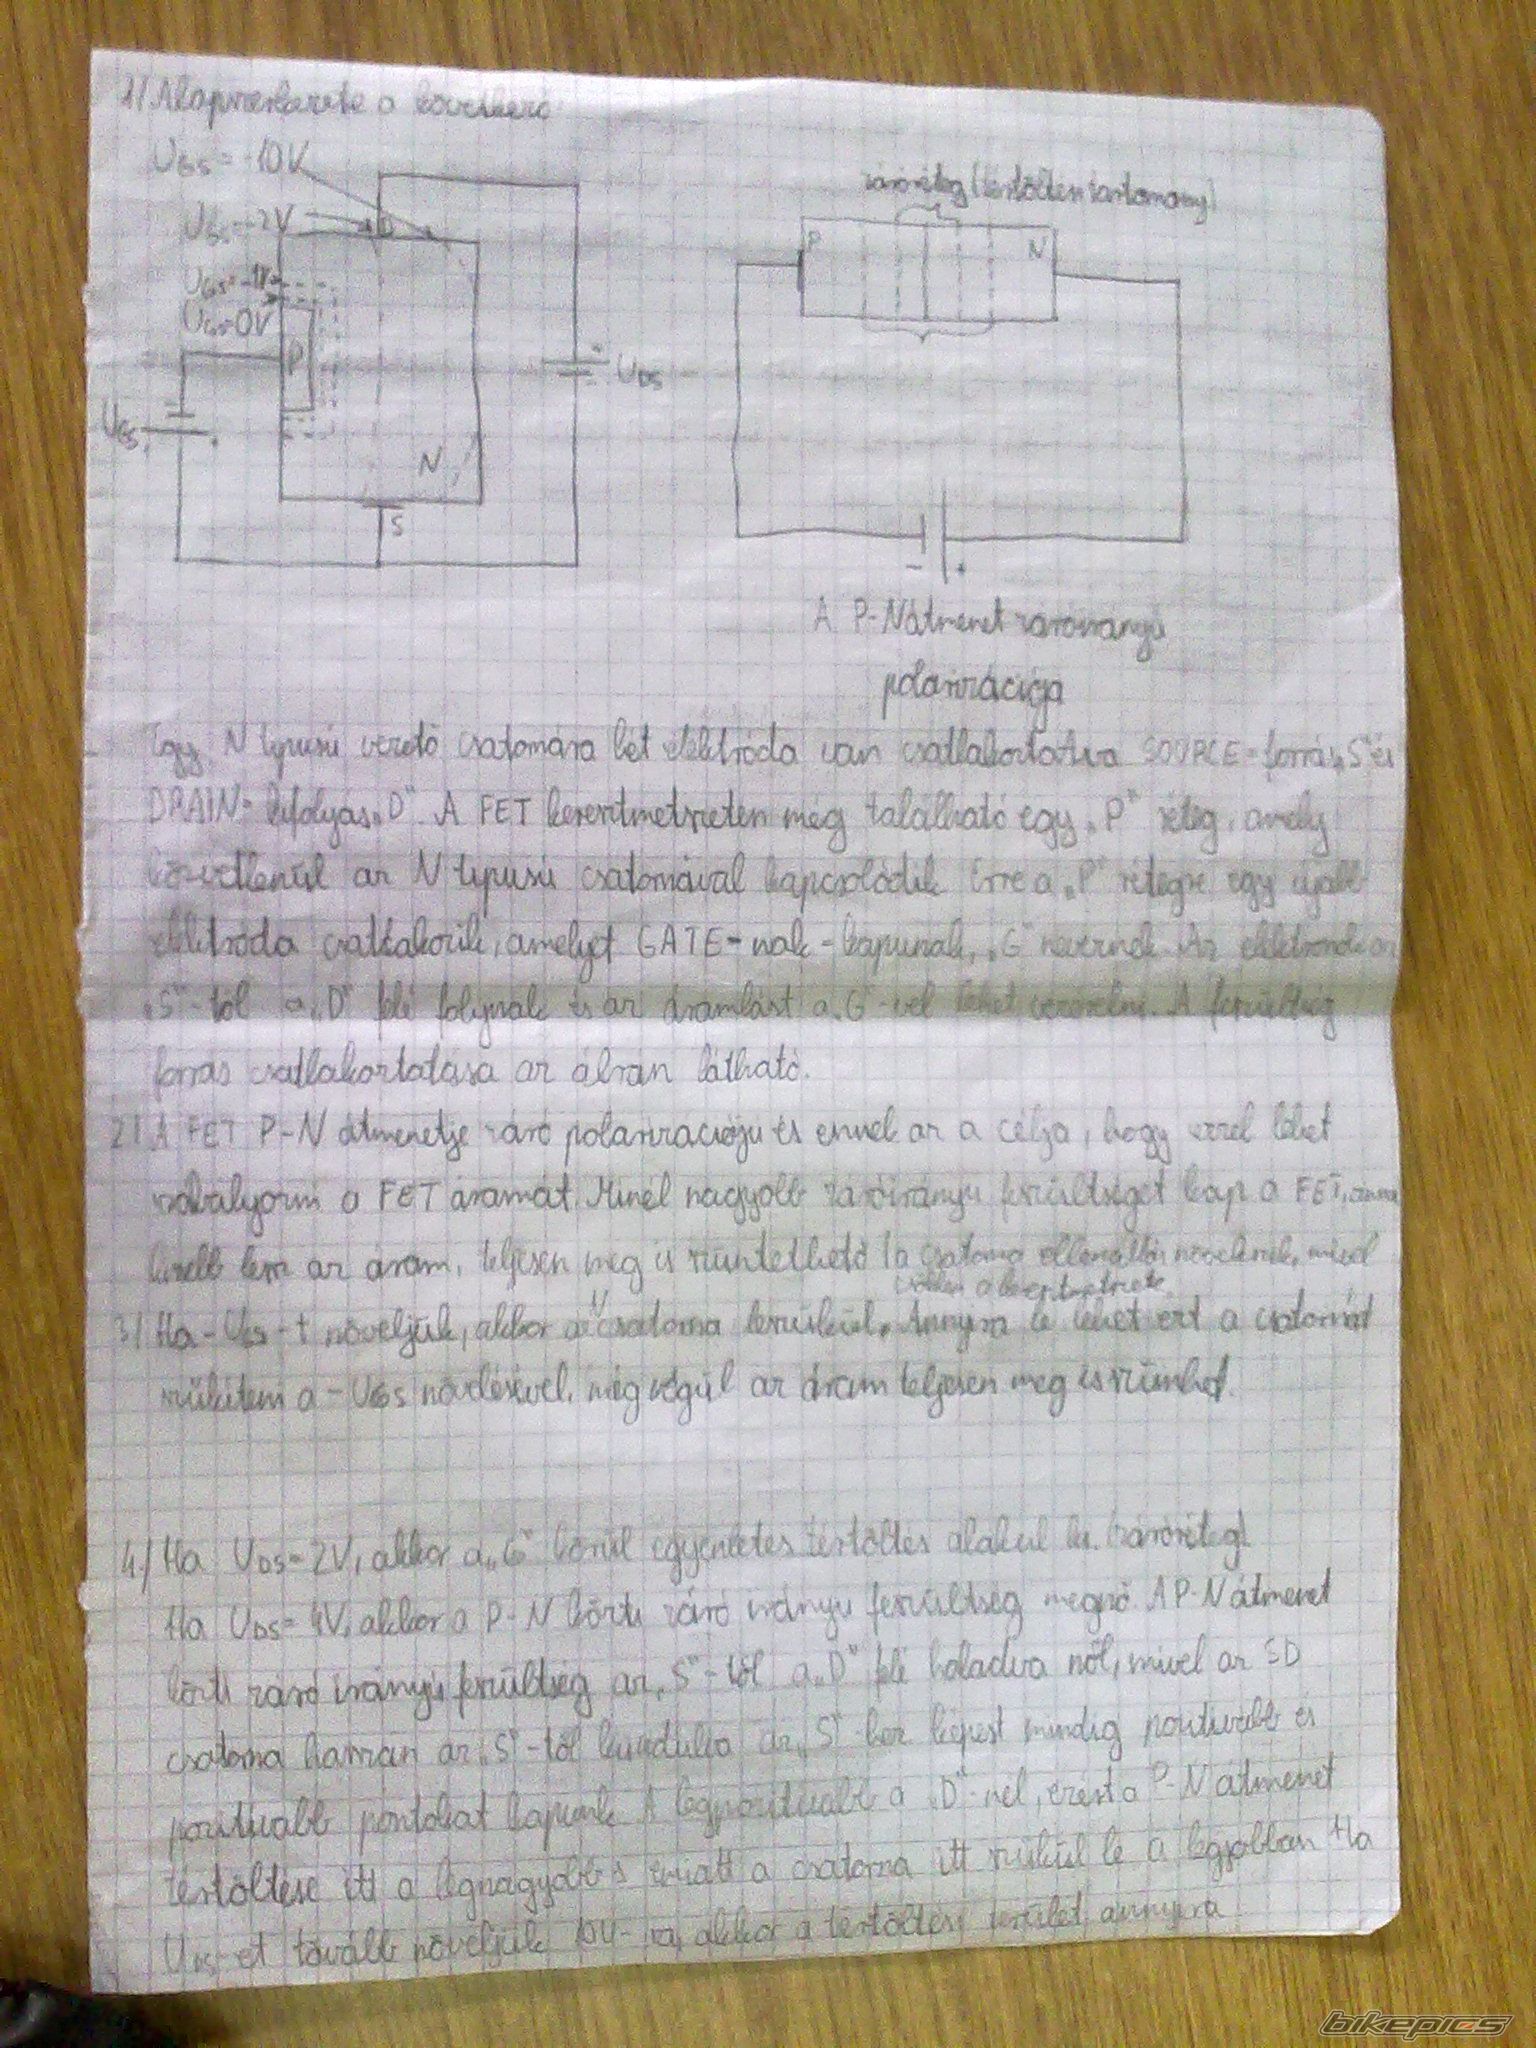 1) Alapszerkezete a következő
UGS = -10V
UGS = -2V
UGS = -1V
UGS = 0V
D
P
UGS
N
S
UDS
záróréteg (tértöltési tartomány)
P
N
A P-N átmenet záróirányú
polarizációja
Egy N típusú vezető csatornára két elektróda van csatlakoztatva SOURCE = forrás „S" és
DRAIN = kifolyás „D". A FET keresztmetszetén még található egy „P" réteg, amely
közvetlenül az N típusú csatornával kapcsolódik. Erre a „P" rétegre egy újabb
elektróda csatlakozik, amelyet GATE-nak - kapunak, „G" neveznek. Az elektronok az
„S"-től a „D" felé folynak és az áramlást a „G"-vel lehet vezérelni. A feszültség
forrás csatlakoztatása az ábrán látható.
2) A FET P-N átmenetje záró polarizációjú és ennek az a célja, hogy ezzel lehet
szabályozni a FET áramát. Minél nagyobb záróirányú feszültséget kap a FET, annál
kisebb lesz az áram, teljesen meg is szüntethető (a csatorna ellenállás növelének, mivel
csökken a keresztmetszete
3) Ha -UGS-t növeljük, akkor a csatorna leszűkül. Annyira le lehet ezt a csatornát
szűkíteni a -UGS növelésével, míg végül az áram teljesen meg is szűnhet.
4.) Ha UDS = 2V, akkor a „G" körül egyenletes tértöltés alakul ki. (záróréteg)
Ha UDS = 4V, akkor a P-N közti záró irányú feszültség megnő. A P-N átmenet
közti záró irányú feszültség az „S"-től a „D" felé haladva nől, mivel az SD
csatorna hasszán az „S"-től kiindulva az „S"-hez képest mindig pozitívabb és
pozitívabb pontokat kapunk. A legpozitívabb a „D"-nél, ezért a P-N átmenet
tértöltése itt a legnagyobb s emiatt a csatorna itt szűkül le a legjobban. Ha
UDS-et tovább növeljük 10V-ra, akkor a tértöltési terület annyira
bikepics